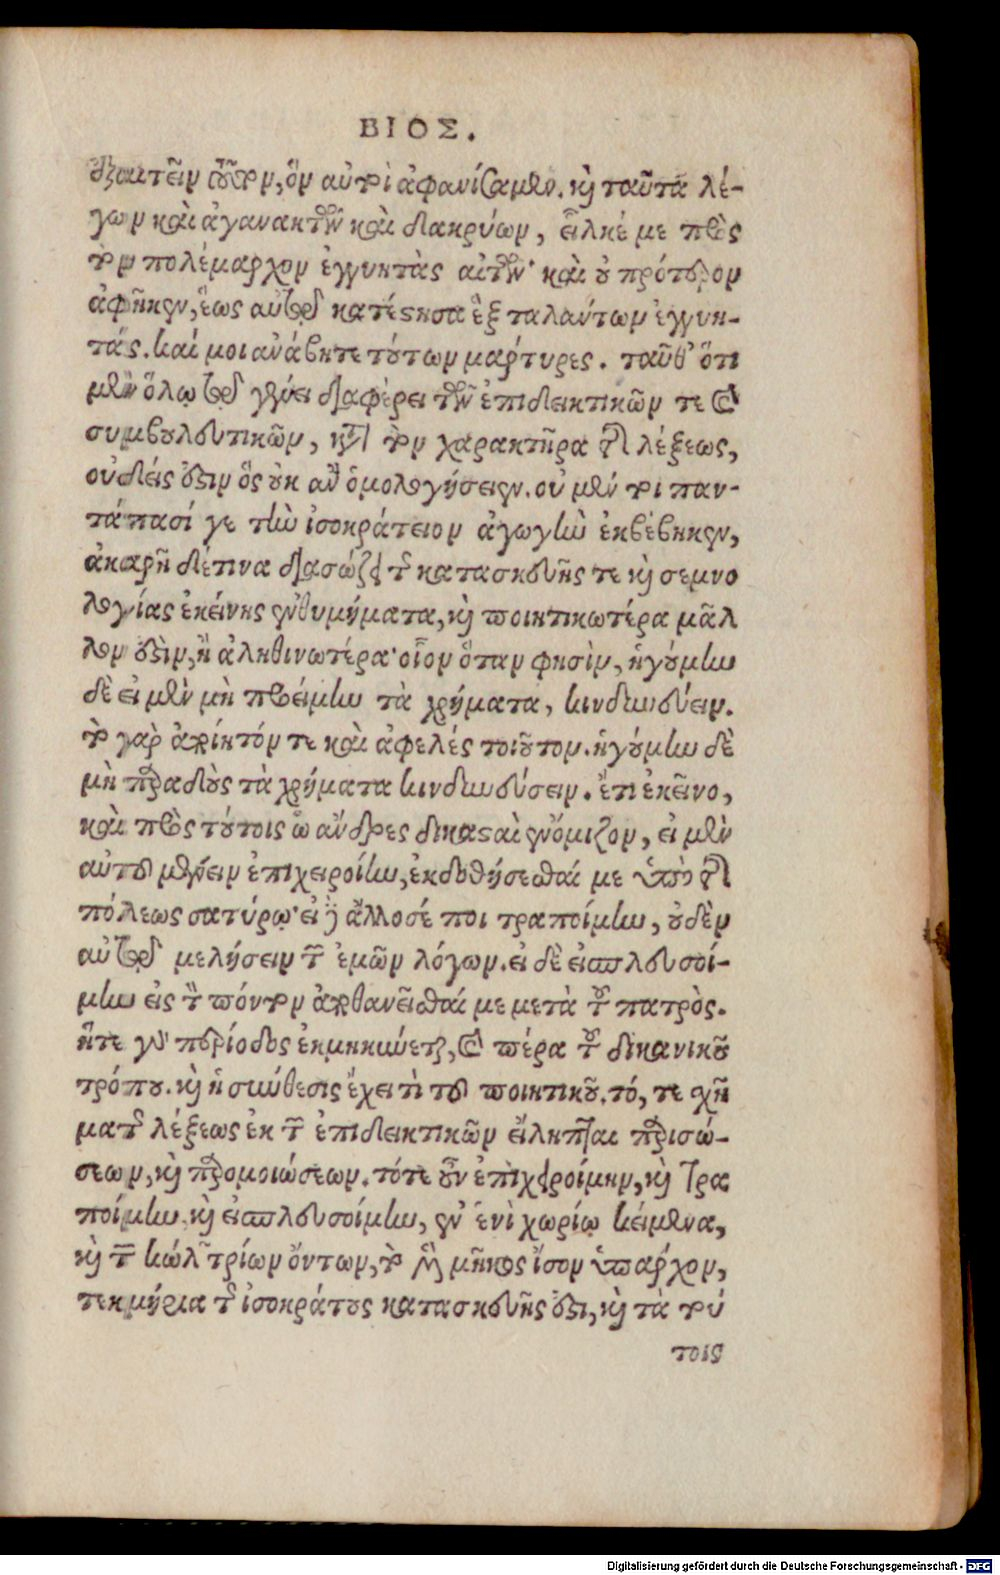 ΒΙΟΣ.
ἐξαιτεῖν ἕτερον, ὃν αὐτοὶ ἀφανίσαμεν. καὶ ταῦτα λέ-
γων καὶ ἀγανακτῶν καὶ δακρύων, εἷλκέ με πρὸς
τὸν πολέμαρχον ἐγγυητὰς αἰτῶν· καὶ οὐ πρότερον
ἀφῆκεν, ἕως αὐτῷ κατέστησα ἓξ ταλάντων ἐγγυη-
τάς. καί μοι ἀνάβητε τούτων μάρτυρες. ταῦθ’ ὅτι
μὲν ὅλῳ τῷ γένει διαφέρει τῶν ἐπιδεικτικῶν τε καὶ
συμβουλευτικῶν, κατὰ τὸν χαρακτῆρα τῆς λέξεως,
οὐδείς ἐστιν ὃς οὐκ ἂν ὁμολογήσειεν. οὐ μέντοι παν-
τάπασί γε τὴν ἰσοκράτειον ἀγωγὴν ἐκβέβηκεν,
ἀκαρῆ δέ τινα διασώζει τῆς κατασκευῆς τε καὶ σεμνο
λογίας ἐκείνης ἐνθυμήματα, καὶ ποιητικωτέρα μᾶλ
λον ἐστὶν, ἢ ἀληθινωτέρα· οἷον ὅταν φησὶν, ἡγούμην
δὲ εἰ μὲν μὴ προείμην τὰ χρήματα, κινδυνεύειν.
τὸ γὰρ ἀποίητόν τε καὶ ἀφελές τοιοῦτον. ἡγούμην δὲ
μὴ παραδοὺς τὰ χρήματα κινδυνεύσειν. ἔτι ἐκεῖνο,
καὶ πρὸς τούτοις ὦ ἄνδρες δικασταὶ ἐνόμιζον, εἰ μὲν
αὐτοῦ μένειν ἐπιχειροίην, ἐκδοθήσεσθαί με ὑπὸ τῆς
πόλεως σατύρῳ· εἰ δὲ ἄλλοσέ ποι τραποίμην, οὐδὲν
αὐτῷ μελήσειν τῶν ἐμῶν λόγων. εἰ δὲ εἰσπλευσοί-
μην εἰς τὸν πόντον ἀποθανεῖσθαί με μετὰ τοῦ πατρὸς.
ἥτε γὰρ περίοδος ἐκμηκύνεται, καὶ πέρα τοῦ δικανικοῦ
τρόπου. καὶ ἡ σύνθεσις ἔχει τὶ τοῦ ποιητικοῦ. τό, τε χῆ
μα τῆς λέξεως ἐκ τῶν ἐπιδεικτικῶν εἴληπται παρισώ-
σεων, καὶ παρομοιώσεων. τότε οὖν ἐπιχειροίμην, καὶ τρα
ποίμην, καὶ εἰσπλευσοίμην, ἐν ἑνὶ χωρίῳ κείμενα,
καὶ τῶν κώλων τρίων ὄντων, τὸ μὴ μῆκος ἴσον ὑπαρχον,
τεκμήρια τῆς ἰσοκράτους κατασκευῆς ἐστι, καὶ τὰ τού
τοις
Digitalisierung gefördert durch die Deutsche Forschungsgemeinschaft - DFG